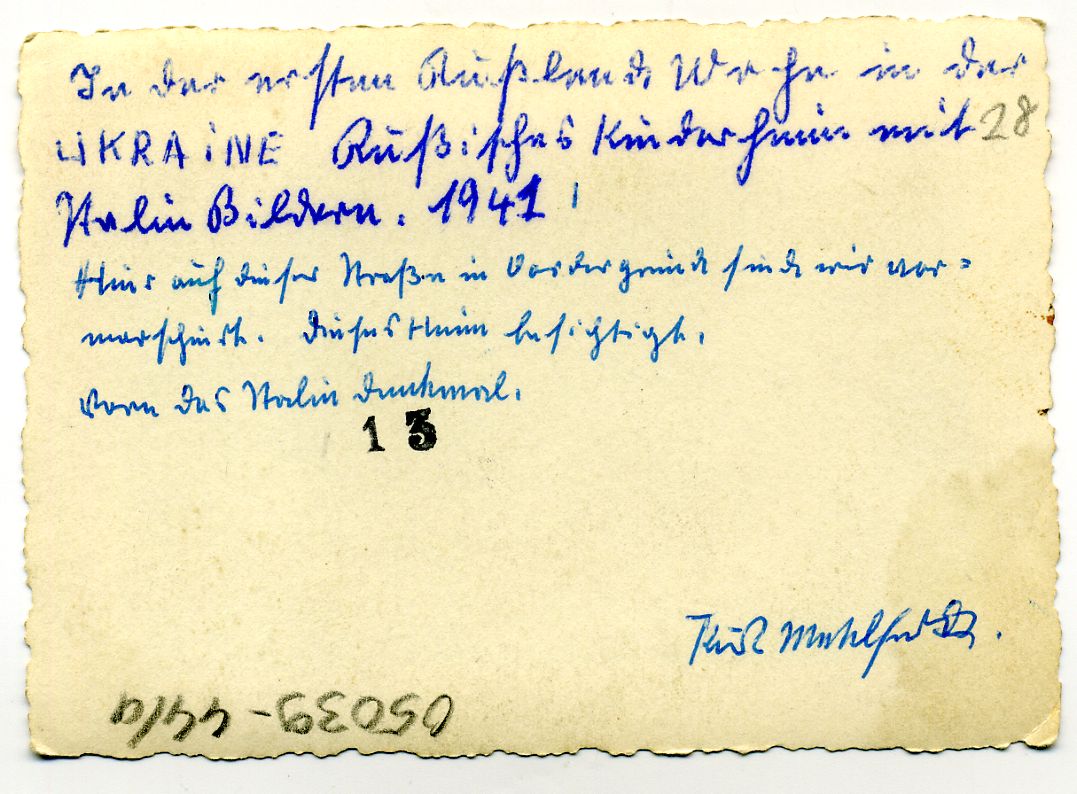 In der ersten Rußlands Woche in der
UKRAiNE Rußisches Kinderheim mit 28
Stalin Bildern. 1941
Hier auf dieser Straße im Vordergrunde sind wir vor=
marschiert. Dieses Heim besichtigt.
Vorn das Stalin Denkmal.
13
Kurt
05039-44/a